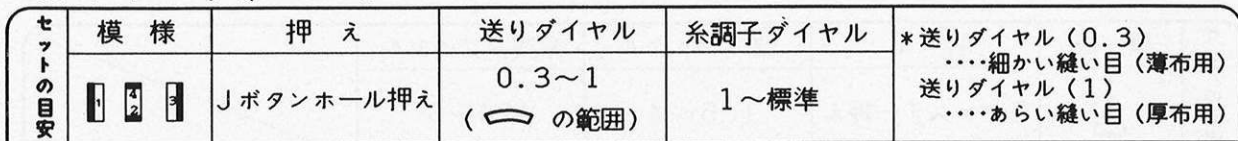 セットの目安
模様 押え 送りダイヤル 糸調子ダイヤル
1 4 2 3 Jボタンホール押え 0.3〜1 1〜標準
( の範囲)
*送りダイヤル(0.3)
‥‥細かい縫い目(薄布用)
送りダイヤル(1)
‥‥あらい縫い目(厚布用)